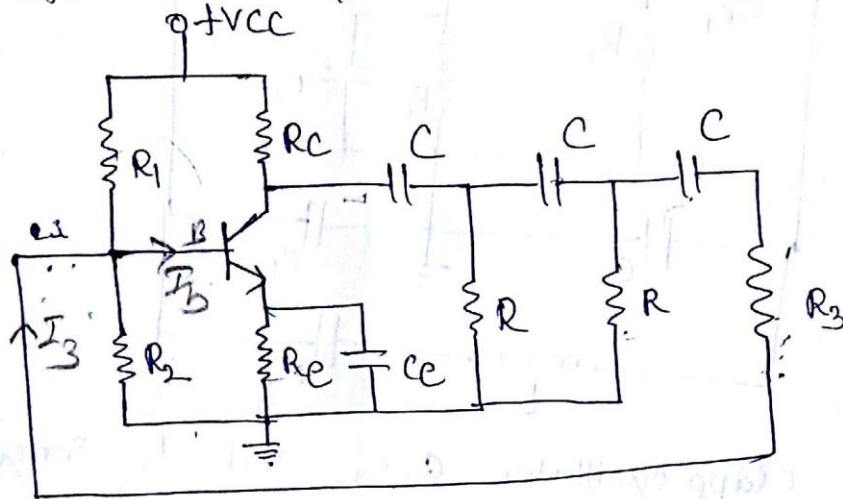 +VCC
R1
RC
C
C
C
B
Ib
I3
R2
Re
Ce
R
R
R3